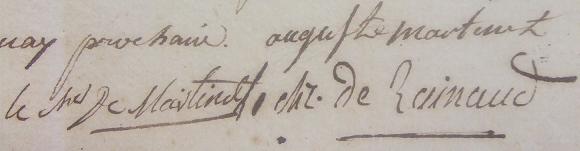 may prochain. auguste martinet
le Mis De Martinet, chr. de Rainaud